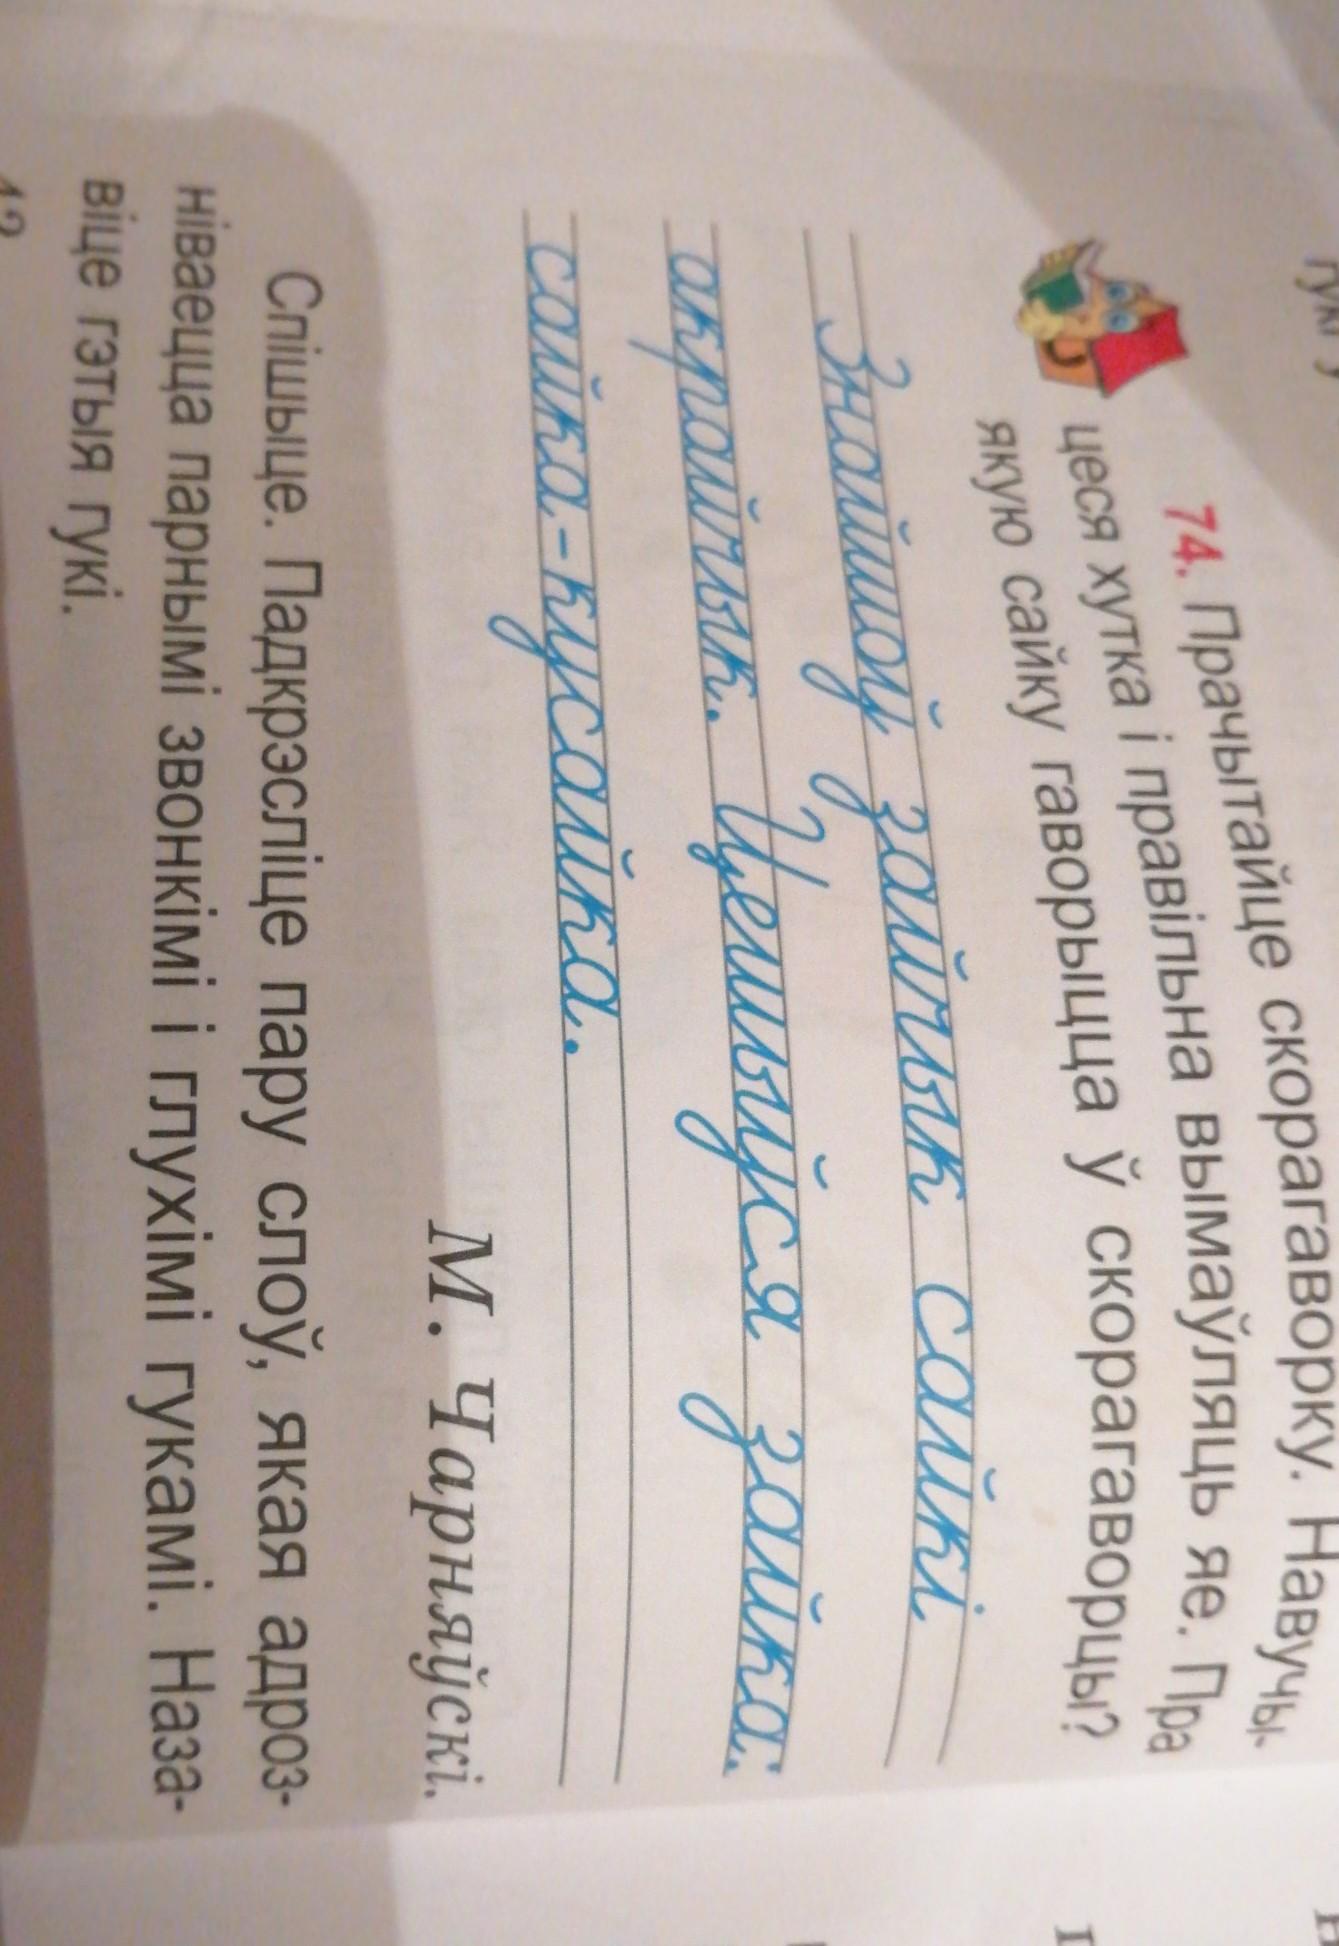 гукі ў
74. Прачытайце скорагаворку. Навучы-
цеся хутка і правільна вымаўляць яе. Пра
якую сайку гаворыцца ў скорагаворцы?
Знайшоў зайчык сайкі
акрайчык. Цешыўся зайка:
сайка-кусайка.
М. Чарняўскі.
Спішыце. Падкрэсліце пару слоў, якая адроз-
ніваецца парнымі звонкімі і глухімі гукамі. Наза-
віце гэтыя гукі.